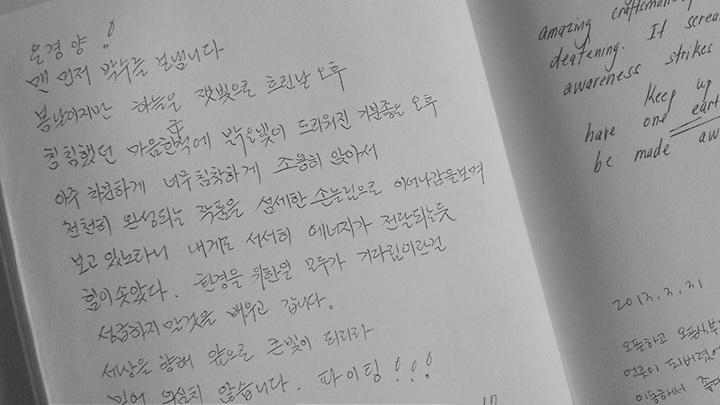 은경양!
맨 먼저 박수를 보냅니다
봄날이지만 하늘은 잿빛으로 흐린날 오후
침침했던 마음한쪽에 밝은빛이 드리워진 기분좋은 오후
아주 차분하게 너무 침착하게 조용히 앉아서
천천히 완성되는 작품을 섬세한 손놀림으로 이어나감을보며
보고 있노라니 내게도 서서히 에너지가 전달되는듯
힘이 솟았다. 환경을 위한일 모두가 기다림이란걸
성급하지 말것을 배우고 갑니다.
세상을 향해 앞으로 큰빛이 되리라
믿어 의심치 않습니다. 파이팅!!!
amazing craftsmanship
deafening. It screa
awareness strikes
Keep up
have one earth
be made aw
2013.3.31.
오픈하고